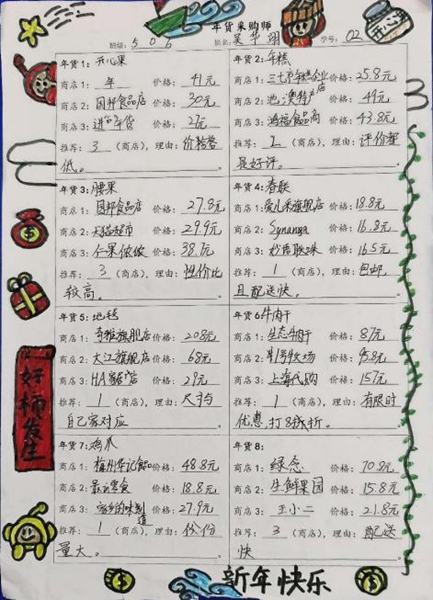 年货采购师
班级: 506 姓名: 吴华翊 学号: 02
年货1: 开心果
商店1: 年 价格: 41元
商店2: 国邦食品店 价格: 30元
商店3: 进的年货 价格: 21元
推荐: 3 (商店), 理由: 价格
低。
年货2: 年糕
商店1: 三七市年糕企业 价格: 25.8元
商店2: 池澳特产店 价格: 49元
商店3: 鸿福食品商 价格: 43.8元
推荐: 1 (商店), 理由: 评价都
是好评。
年货3: 腰果
商店1: 国邦食品店 价格: 27.8元
商店2: 天猫超市 价格: 29.9元
商店3: 仁果侬侬 价格: 38.7元
推荐: 3 (商店), 理由: 性价比
较高。
年货4: 春联
商店1: 爱儿禾旗舰店 价格: 18.8元
商店2: Synanya 价格: 16.8元
商店3: 妙吉联珠 价格: 16.5元
推荐: 1 (商店), 理由: 包邮,
且配送快。
年货5: 地毯
商店1: 旗舰店 价格: 208元
商店2: 大江旗舰店 价格: 68元
商店3: 价格: 29元
推荐: 1 (商店), 理由: 尺寸与
自己家对应
年货6: 牛肉干
商店1: 生态牛肉干 价格: 87元
商店2: 牧场 价格: 95.8元
商店3: 上海代购 价格: 157元
推荐: 1 (商店), 理由: 有限时
优惠,打8折。
年货7: 鸡爪
商店1: 梅州华记食品 价格: 48.8元
商店2: 零食 价格: 18.8元
商店3: 家乡的味道 价格: 27.9元
推荐: 1 (商店), 理由: 份份
量大。
年货8:
商店1: 绿念 价格: 70.8元
商店2: 生鲜果园 价格: 15.8元
商店3: 王小二 价格: 21.8元
推荐: 3 (商店), 理由: 配送
快
好柿发生
新年快乐